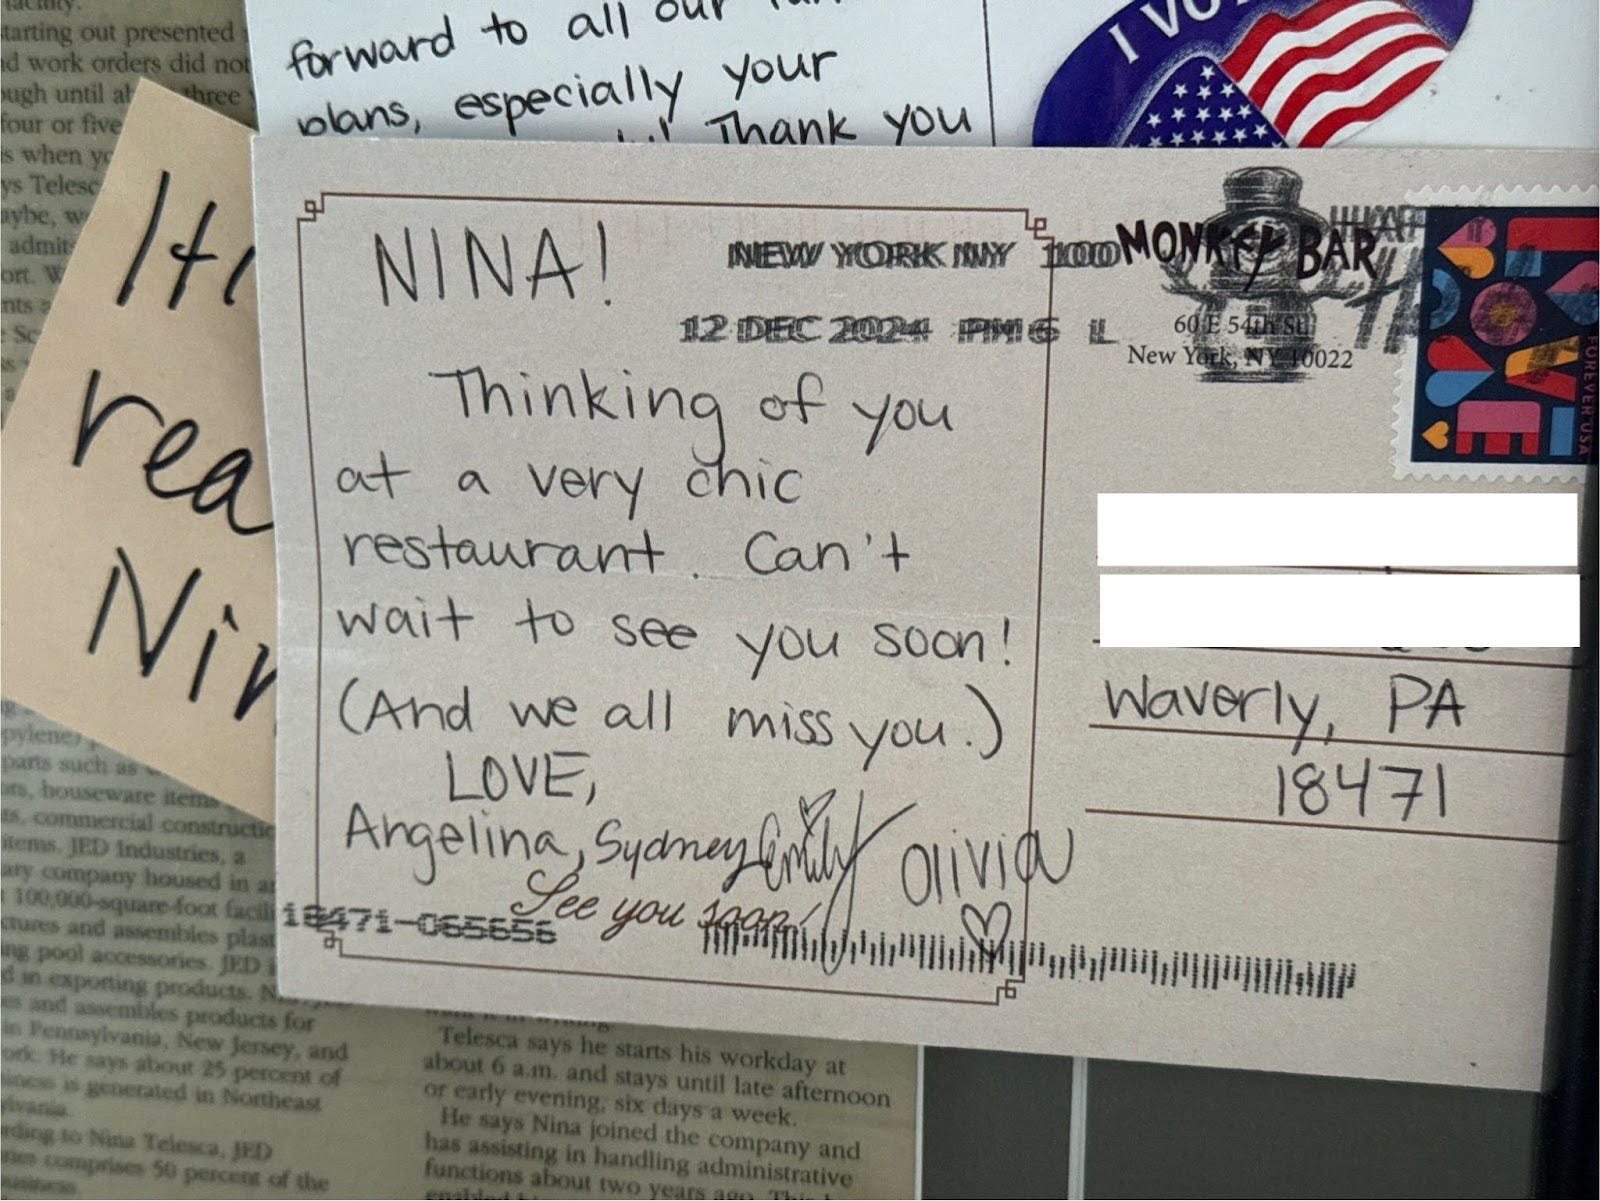 facility.
starting out presented
work orders did not
until three
four or five
is when
Telesc
admit
ort. W
forward to all our
plans, especially your
Thank you
I VO
It
rea
Nin
NINA!
Thinking of you
at a very chic
restaurant. Can't
wait to see you soon!
(And we all miss you.)
LOVE,
Angelina, Sydney Emily Olivia
See you soon!
NEW YORK NY 100
12 DEC 2024 PM 6 L
MONKEY BAR
60 E 54th St.
New York, NY 10022
FOREVER USA
Waverly, PA
18471
18471-065656
parts such as
houseware items
commercial constructio
items. JED Industries, a
company housed in a
100,000-square-foot facili
and assembles plast
pool accessories. JED
in exporting products. N
and assembles products for
in Pennsylvania, New Jersey, and
ork. He says about 25 percent of
is generated in Northeast
lvania.
rding to Nina Telesca, JED
comprises 50 percent of the
business
Telesca says he starts his workday at
about 6 a.m. and stays until late afternoon
or early evening, six days a week.
He says Nina joined the company and
has assisting in handling administrative
functions about two years ago. This